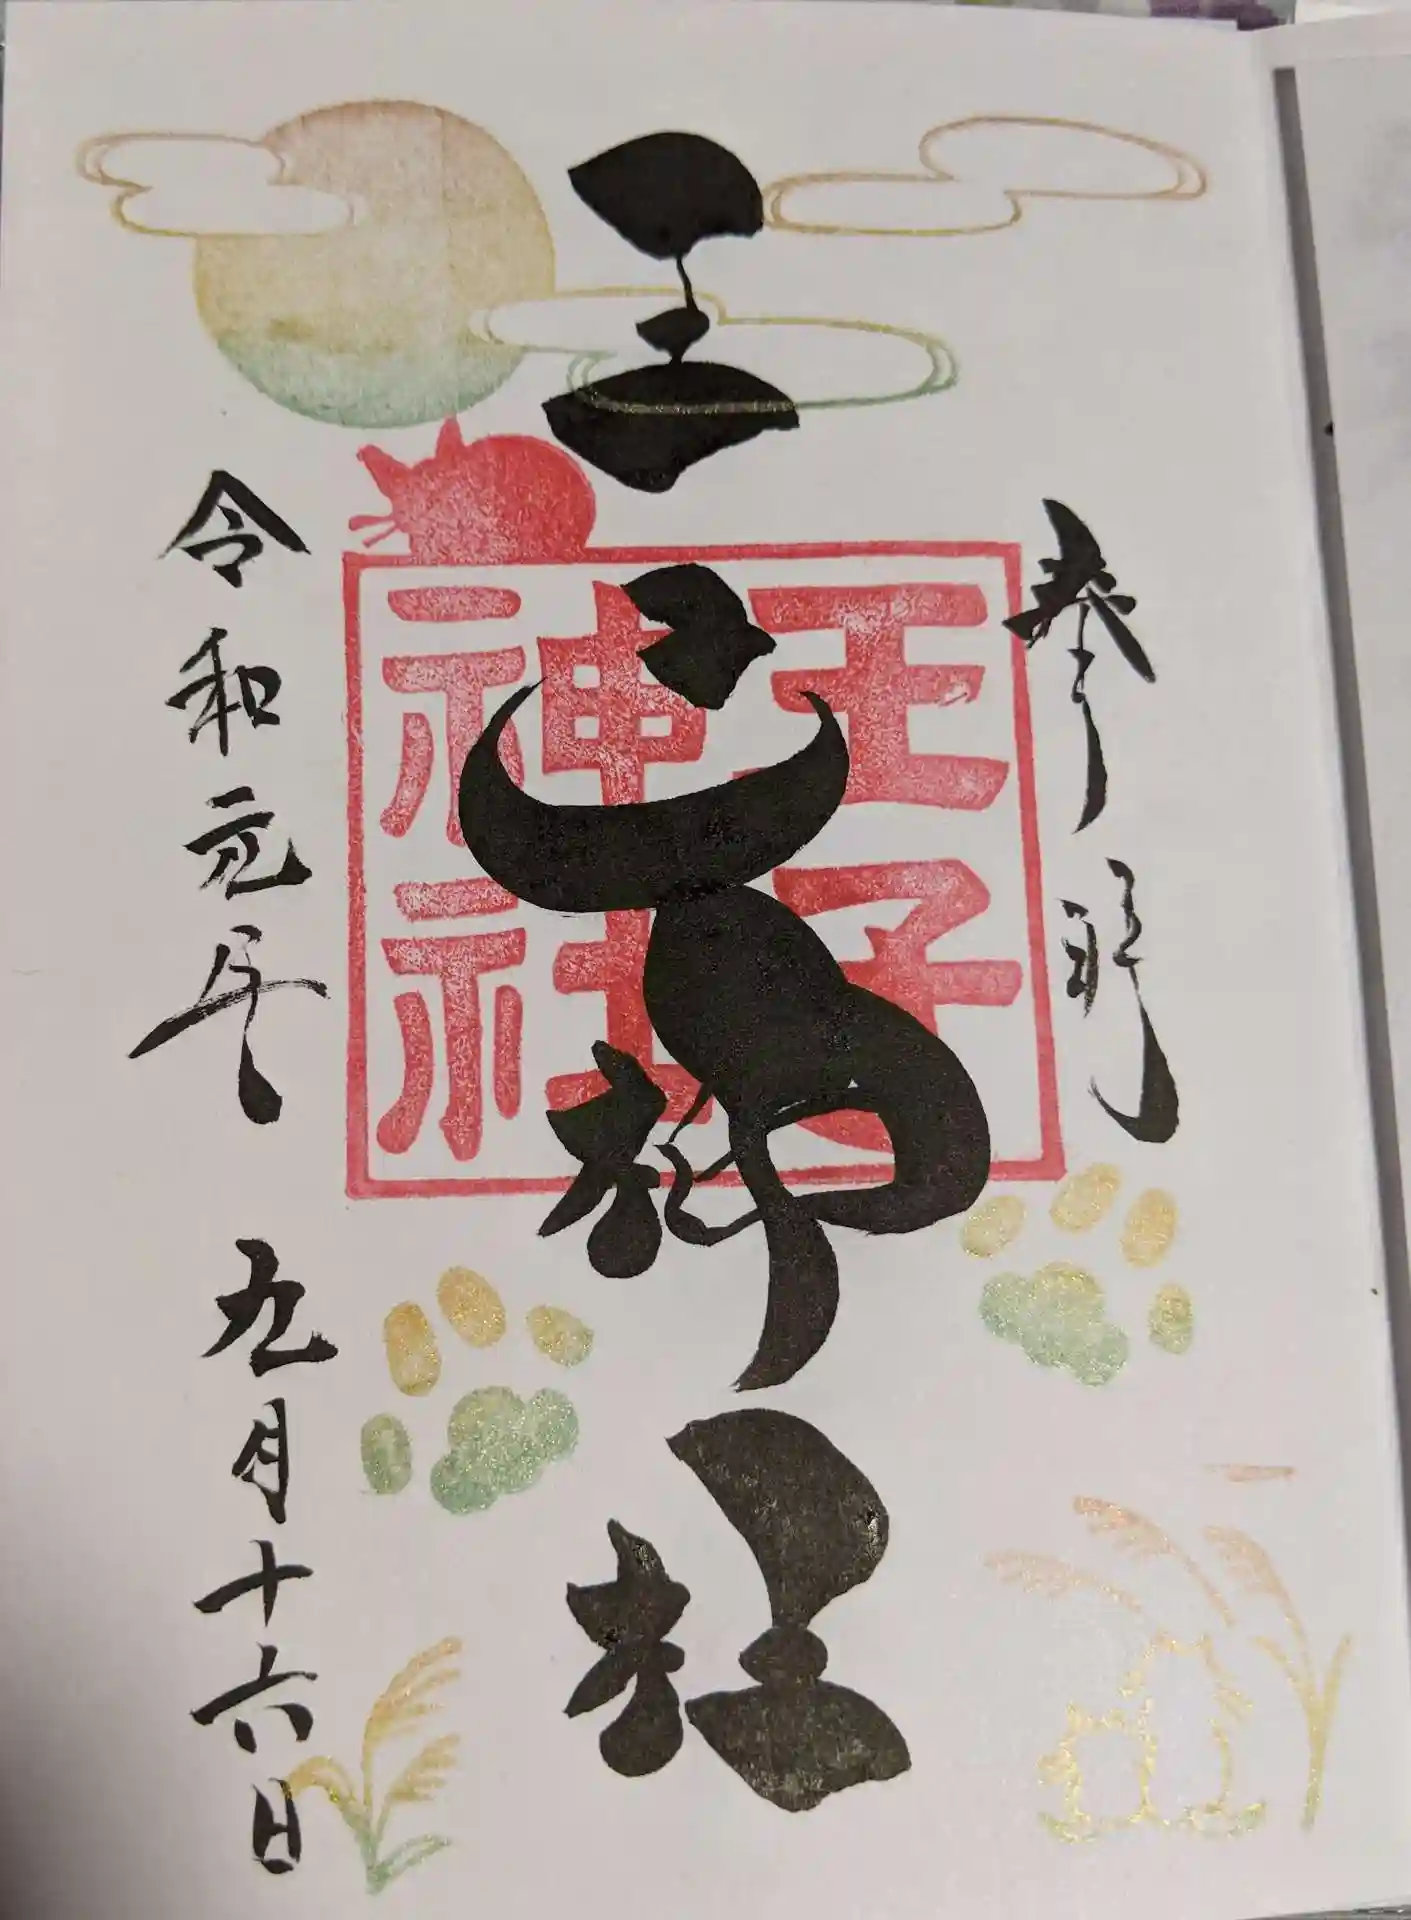 奉拝
王子神社
王子神社
令和元年 九月十六日